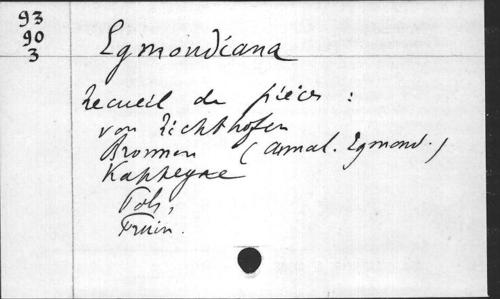 93
90
3
Egmondiana
Recueil de pièces :
von Richthofen
Brommen (annal. Egmond.)
Kappeyne
Pols,
Fruin.